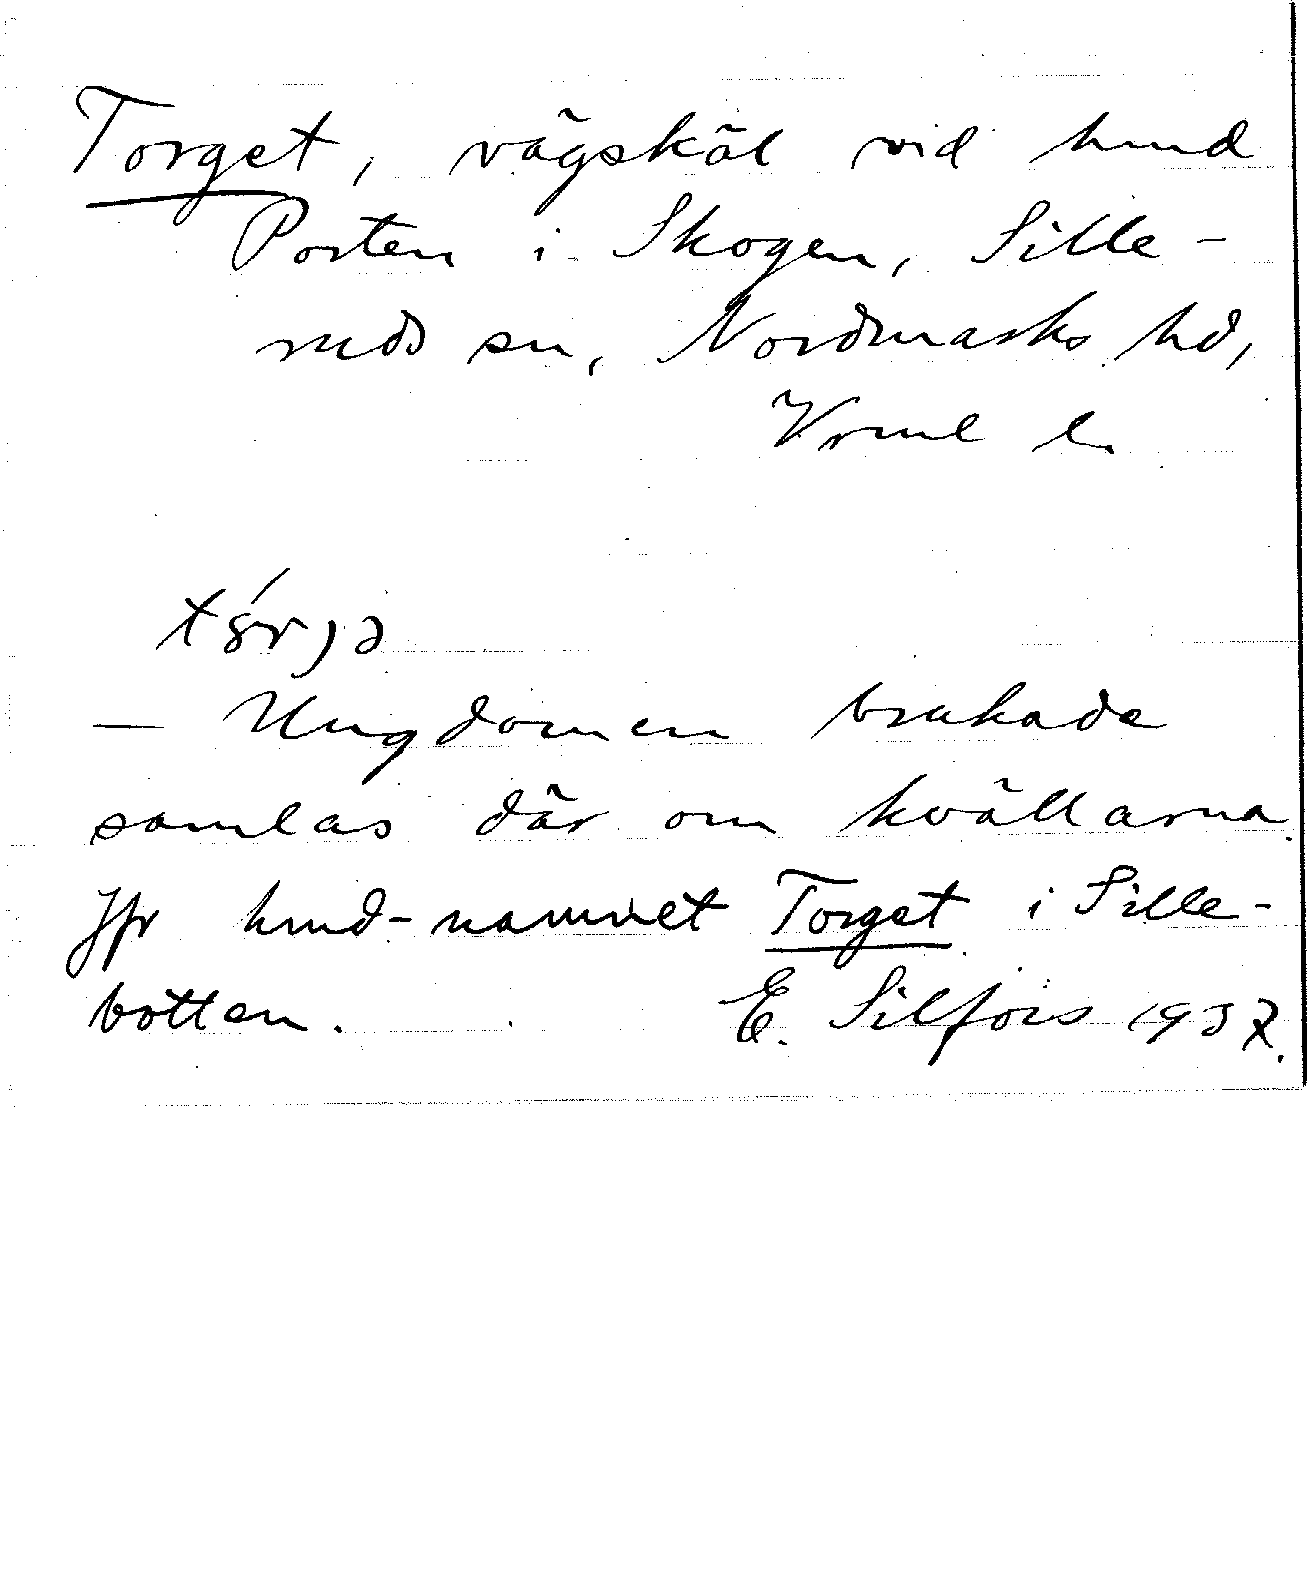 Torget, vägskäl vid hmd
Porten i Skogen, Sille-
ruds sn, Nordmarks hd,
Vrml l.
tǿrjə
— Ungdomen brukade
samlas där om kvällarna.
Jfr hmd-namnet Torget i Sille-
botten. E. Silfors 1937.